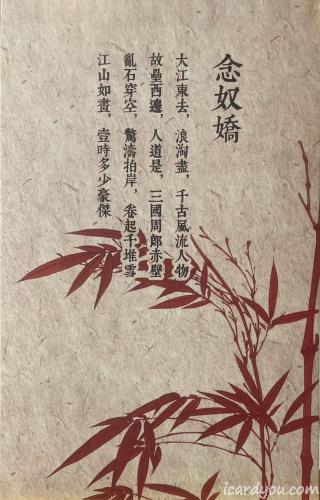 念奴嬌
大江東去，浪淘盡，千古風流人物
故壘西邊，人道是，三國周郎赤壁
亂石穿空，驚濤拍岸，卷起千堆雪
江山如畫，壹時多少豪傑
icardyou.com